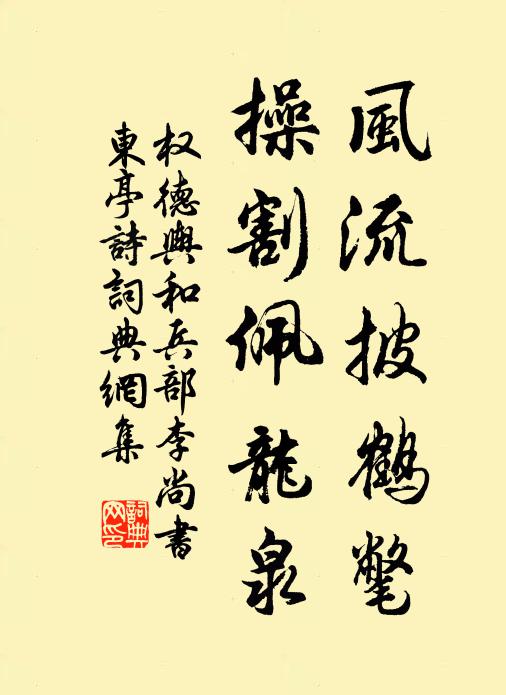 風流披鶴氅
操割佩龍泉
权德輿和兵部李尚書
東亭詩詞典網集
詞典网印